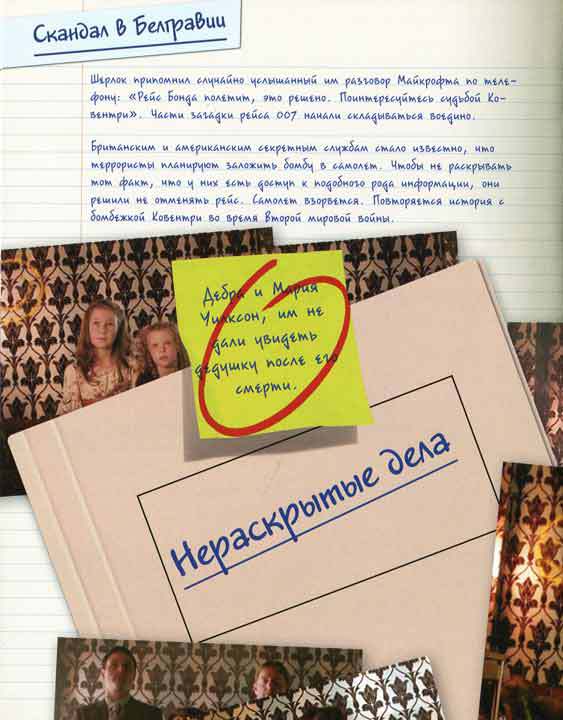 Скандал в Белгравии
Шерлок припомнил случайно услышанный им разговор Майкрофта по теле-
фону: «Рейс Бонда полетит, это решено. Поинтересуйтесь судьбой Ко-
вентри». Части загадки рейса 007 начали складываться воедино.
Британским и американским секретным службам стало известно, что
террористы планируют заложить бомбу в самолет. Чтобы не раскрывать
тот факт, что у них есть доступ к подобного рода информации, они
решили не отменять рейс. Самолет взорвется. Повторяется история с
бомбежкой Ковентри во время Второй мировой войны.
Дебра и Мария
Уилксон, им не
дали увидеть
дедушку после его
смерти.
Нераскрытые дела